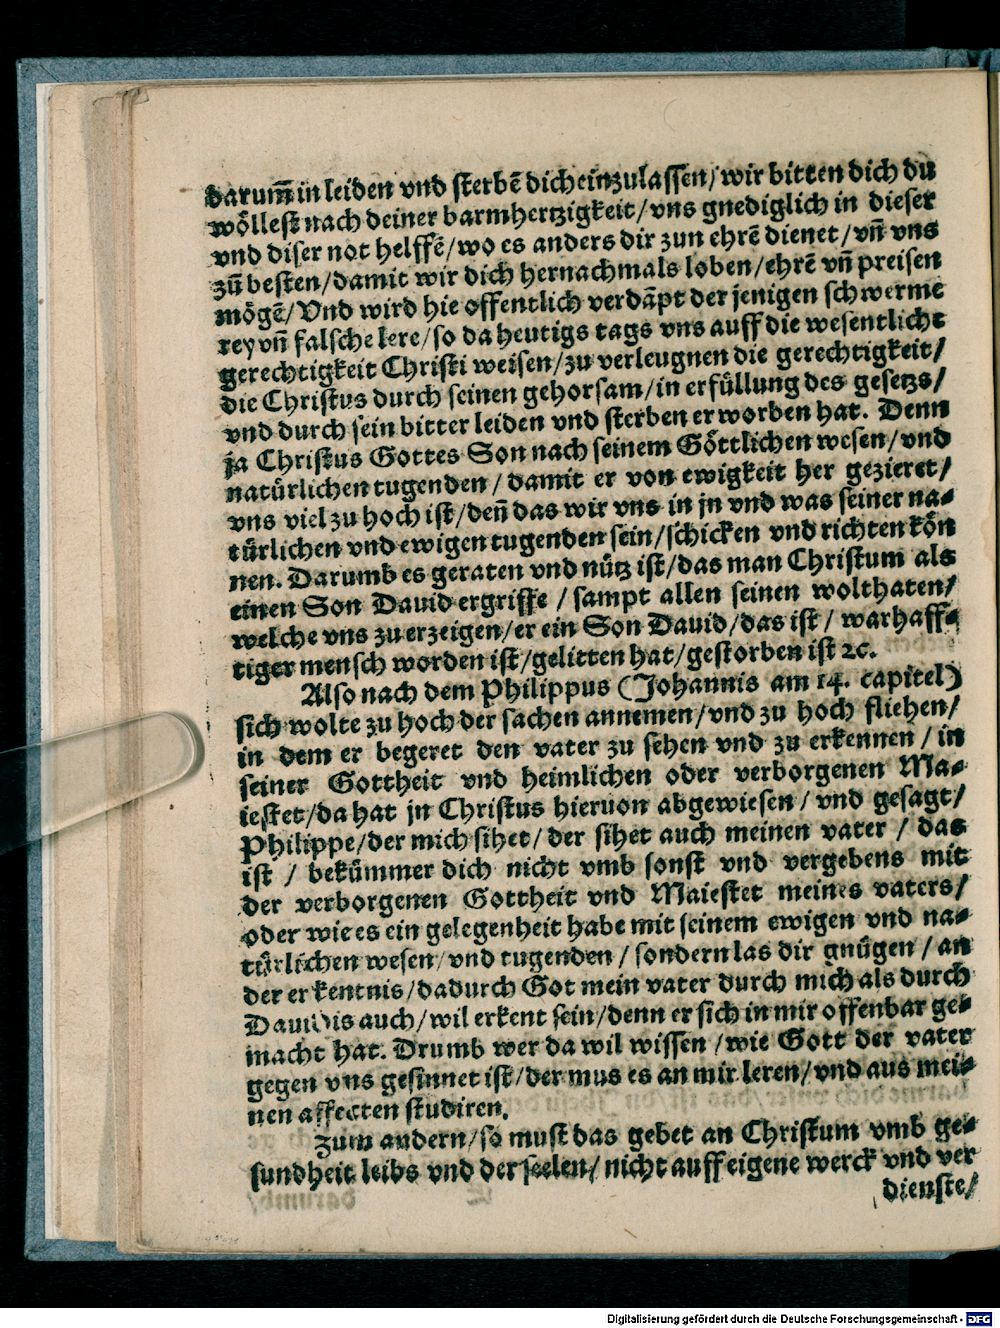 darum̃ in leiden vnd sterbẽ dich einzulassen/ wir bitten dich du
wöllest nach deiner barmhertzigkeit/ vns gnediglich in dieser
vnd diser not helffẽ/ wo es anders dir zun ehrẽ dienet/ vñ vns
zũ besten/ damit wir dich hernachmals loben/ ehrẽ vñ preisen
mögẽ/ Vnd wird hie offentlich verdãpt der jenigen schwerme
rey vñ falsche lere/ so da heutigs tags vns auff die wesentliche
gerechtigkeit Christi weisen/ zu verleugnen die gerechtigkeit/
die Christus durch seinen gehorsam/ in erfüllung des gesetzs/
vnd durch sein bitter leiden vnd sterben erworben hat. Denn
ja Christus Gottes Son nach seinem Göttlichen wesen/ vnd
natürlichen tugenden/ damit er von ewigkeit her gezieret/
vns viel zu hoch ist/ deñ das wir vns in jn vnd was seiner na-
türlichen vnd ewigen tugenden sein/ schicken vnd richten kön
nen. Darumb es geraten vnd nütz ist/ das man Christum als
einen Son Dauid ergriffe/ sampt allen seinen wolthaten/
welche vns zu erzeigen/ er ein Son Dauid/ das ist/ warhaff-
tiger mensch worden ist/ gelitten hat/ gestorben ist ꝛc.
Also nach dem Philippus (Johannis am 14. capitel)
sich wolte zu hoch der sachen annemen/ vnd zu hoch fliehen/
in dem er begeret den vater zu sehen vnd zu erkennen/ in
seiner Gottheit vnd heimlichen oder verborgenen Ma-
iestet/ da hat jn Christus hieruon abgewiesen/ vnd gesagt/
Philippe/ der mich sihet/ der sihet auch meinen vater/ das
ist/ bekümmer dich nicht vmb sonst vnd vergebens mit
der verborgenen Gottheit vnd Maiestet meines vaters/
oder wie es ein gelegenheit habe mit seinem ewigen vnd na-
türlichen wesen/ vnd tugenden/ sondern las dir gnügen/ an
der erkentnis/ dadurch Got mein vater durch mich als durch
Dauidis auch/ wil erkent sein/ denn er sich in mir offenbar ge-
macht hat. Drumb wer da wil wissen/ wie Gott der vater
gegen vns gesinnet ist/ der mus es an mir leren/ vnd aus mei-
nen affecten studiren.
Zum andern/ so must das gebet an Christum vmb ge-
sundheit leibs vnd der seelen/ nicht auff eigene werck vnd ver
dienste/
Digitalisierung gefördert durch die Deutsche Forschungsgemeinschaft - DFG